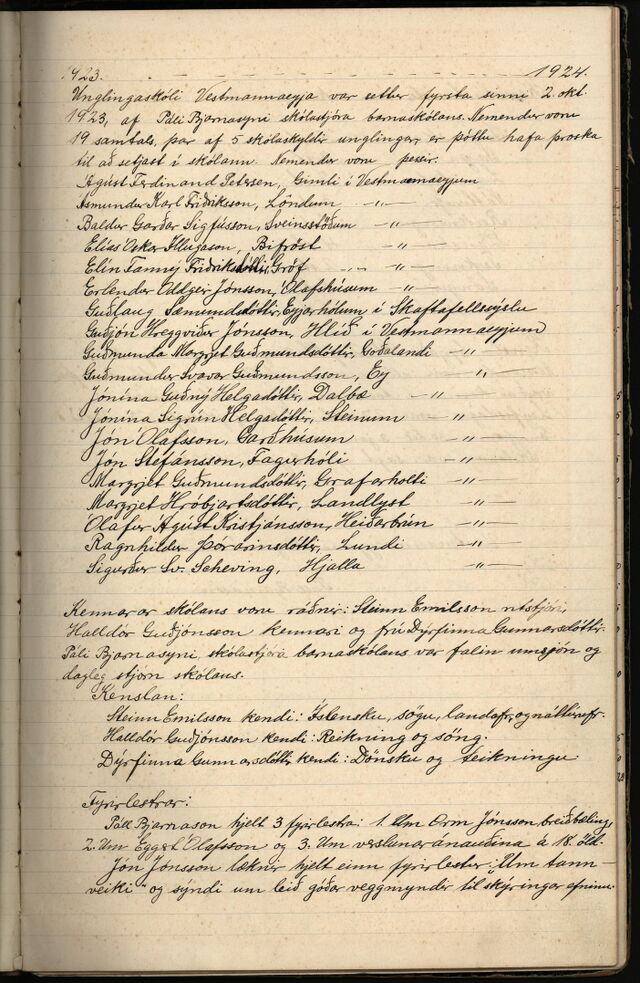 1923. 1924.
Unglingaskóli Vestmannaeyja var settur fyrsta sinni 2. okt
1923, af Páli Bjarnasyni skólastjóra barnaskólans. Nemendur voru
19 samtals, þar af 5 skólaskyldir unglingar, er þóttu hafa þroska
til að setjast í skólann. Nemendur voru þessir.
Ágúst Ferdinand Petersen, Gimli í Vestmannaeyjum
Ásmundur Karl Friðriksson, Löndum —"—
Baldur Garðar Sigfússon, Sveinsstöðum —"—
Elías Óskar Illugason, Bifröst —"—
Elín Fanny Friðriksdóttir, Gróf —"—
Erlendur Oddgeir Jónsson, Ólafshúsum —"—
Guðlaug Sæmundsdóttir, Eyjarhólum í Skaftafellssýslu
Guðjón Hreggviður Jónsson, Hlíð í Vestmannaeyjum
Guðmunda Margrjet Guðmundsdóttir, Goðalandi —"—
Guðmundur Svavar Guðmundsson, Ey —"—
Jónína Guðný Helgadóttir, Dalbæ —"—
Jónína Sigrún Helgadóttir, Steinum —"—
Jón Ólafsson, Garðhúsum —"—
Jón Stefánsson, Fagurhóli —"—
Margrjet Guðmundsdóttir, Grafarholti —"—
Margrjet Hróbjartsdóttir, Landlyst —"—
Ólafur Ágúst Kristjánsson, Heiðarbrún —"—
Ragnhildur Þórarinsdóttir, Lundi —"—
Sigurður Sv. Scheving, Hjalla —"—
Kennarar skólans voru ráðnir: Steinn Emilsson ritstjóri,
Halldór Guðjónsson kennari og frú Dýrfinna Gunnarsdóttir.
Páli Bjarnasyni, skólastjóra barnaskólans var falin umsjón og
dagleg stjórn skólans.
Kenslan:
Steinn Emilsson kendi: Íslensku, sögu, landafr, og náttúrufr.
Halldór Guðjónsson kendi: Reikning og söng.
Dýrfinna Gunnarsdóttir kendi: Dönsku og teikningu.
Fyrirlestrar:
Páll Bjarnason hjelt 3 fyrirlestra: 1. Um Orm Jónsson breiðbeling,
2. Um Eggert Ólafsson og 3. Um verslunaránauðina á 18. öld.
Jón Jónsson læknir hjelt einn fyrirlestur: "Um tann-
veiki" og sýndi um leið góðar veggmyndir til skýringar efninu.